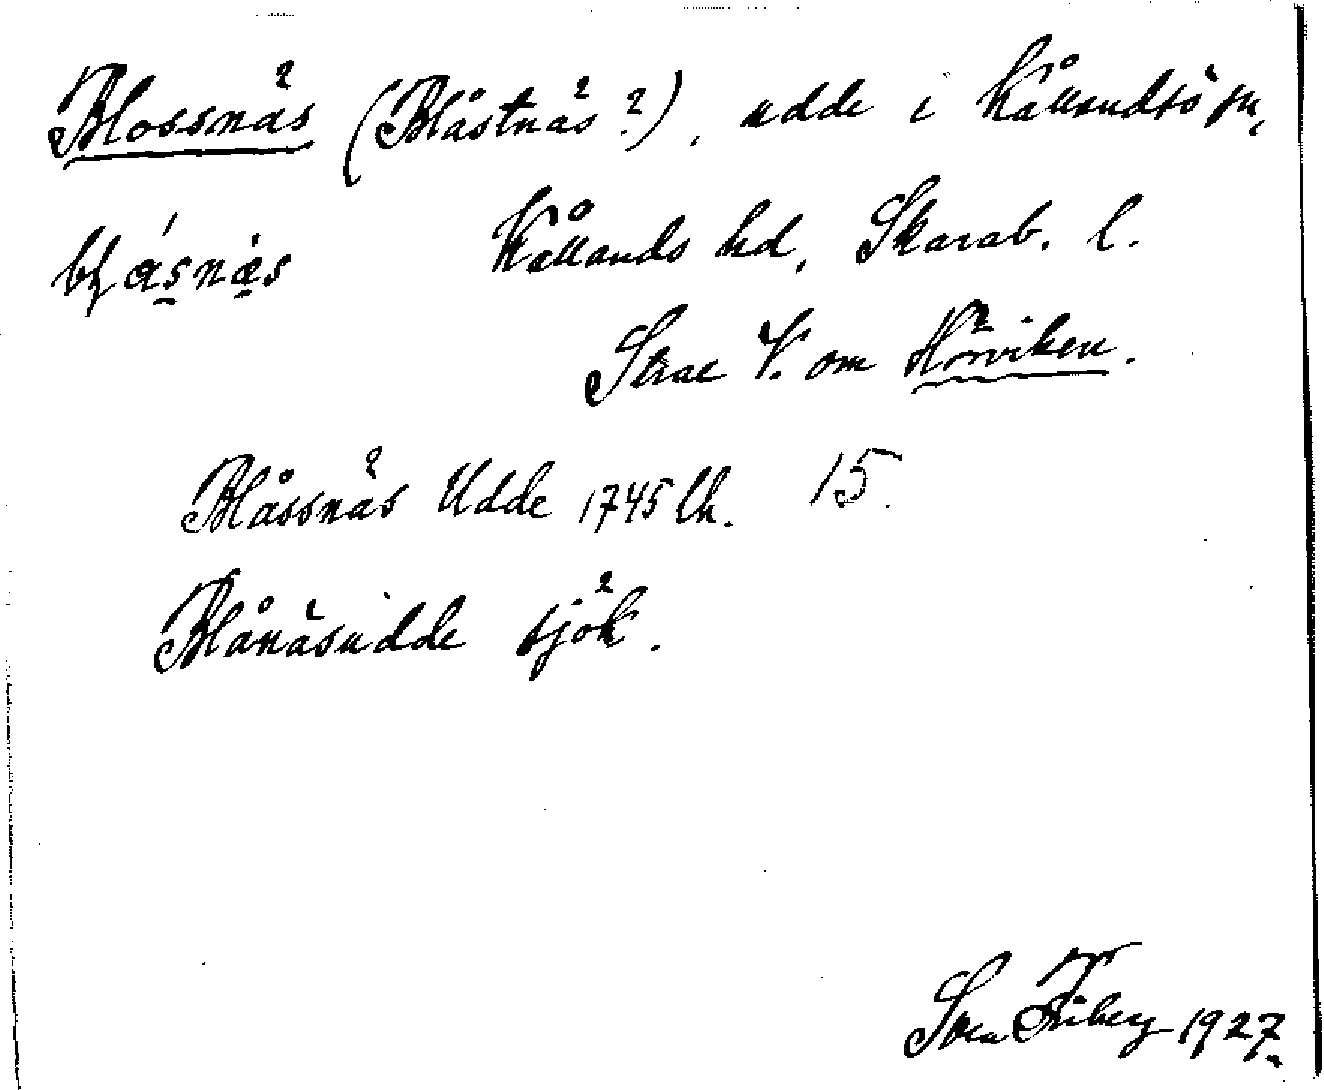 Blossnäs (Blåstnäs?), udde i Kållandsö sn,
Kållands hd, Skarab. l.
Strax V. om Hörviken.
Blåssnäs Udde 1745 lk. 15.
Blånäsudde sjök.
Sven Fiberg 1927.